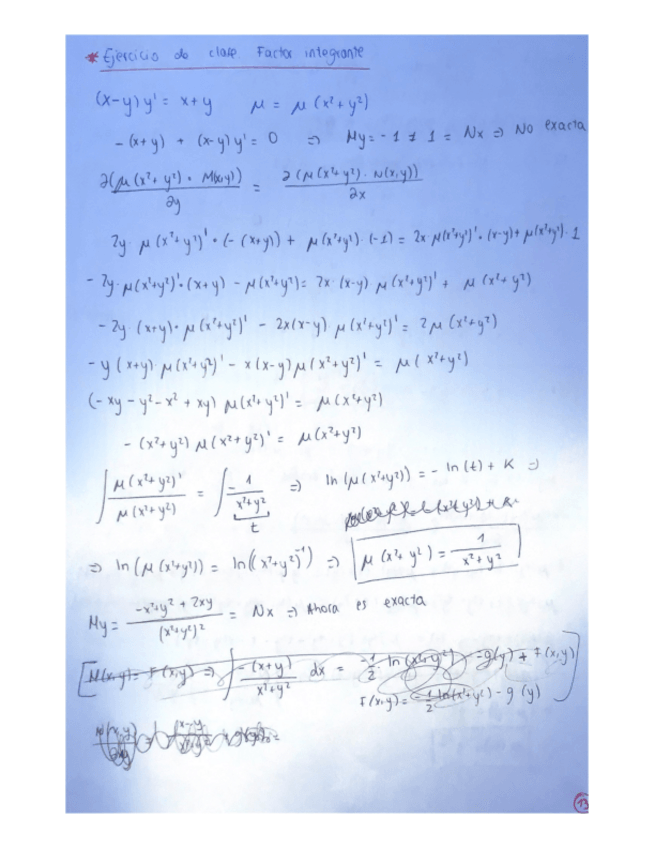 * Ejercicio de clase. Factor integrante
(x-y) y' = x+y    μ = μ(x²+y²)
-(x+y) + (x-y) y' = 0 ⇒ My = -1 ≠ 1 = Nx ⇒ No exacta
∂(μ(x²+y²) · M(x,y)) / ∂y = ∂(μ(x²+y²) · N(x,y)) / ∂x
2y · μ(x²+y²)' · (-(x+y)) + μ(x²+y²) · (-1) = 2x · μ(x²+y²)' · (x-y) + μ(x²+y²) · 1
- 2y · μ(x²+y²)' · (x+y) - μ(x²+y²) = 2x · (x-y) μ(x²+y²)' + μ(x²+y²)
- 2y · (x+y) · μ(x²+y²)' - 2x(x-y) · μ(x²+y²)' = 2μ(x²+y²)
- y (x+y) μ(x²+y²)' - x(x-y) μ(x²+y²)' = μ(x²+y²)
(-xy - y² - x² + xy) μ(x²+y²)' = μ(x²+y²)
- (x²+y²) μ(x²+y²)' = μ(x²+y²)
∫ μ(x²+y²)' / μ(x²+y²) = ∫ - 1 / (x²+y²) ⇒ ln(μ(x²+y²)) = - ln(t) + K ⇒
t
⇒ ln(μ(x²+y²)) = ln((x²+y²)⁻¹) ⇒ μ(x²+y²) = 1 / (x²+y²)
My = (-x²+y²+2xy) / (x²+y²)² = Nx ⇒ Ahora es exacta
[M(x,y) = F(x,y) ⇒ ∫ -(x+y) / (x²+y²) dx = -1/2 ln(x²+y²) - g(y) + F(x,y)
F(x,y) = -1/2 ln(x²+y²) - g(y)]
13